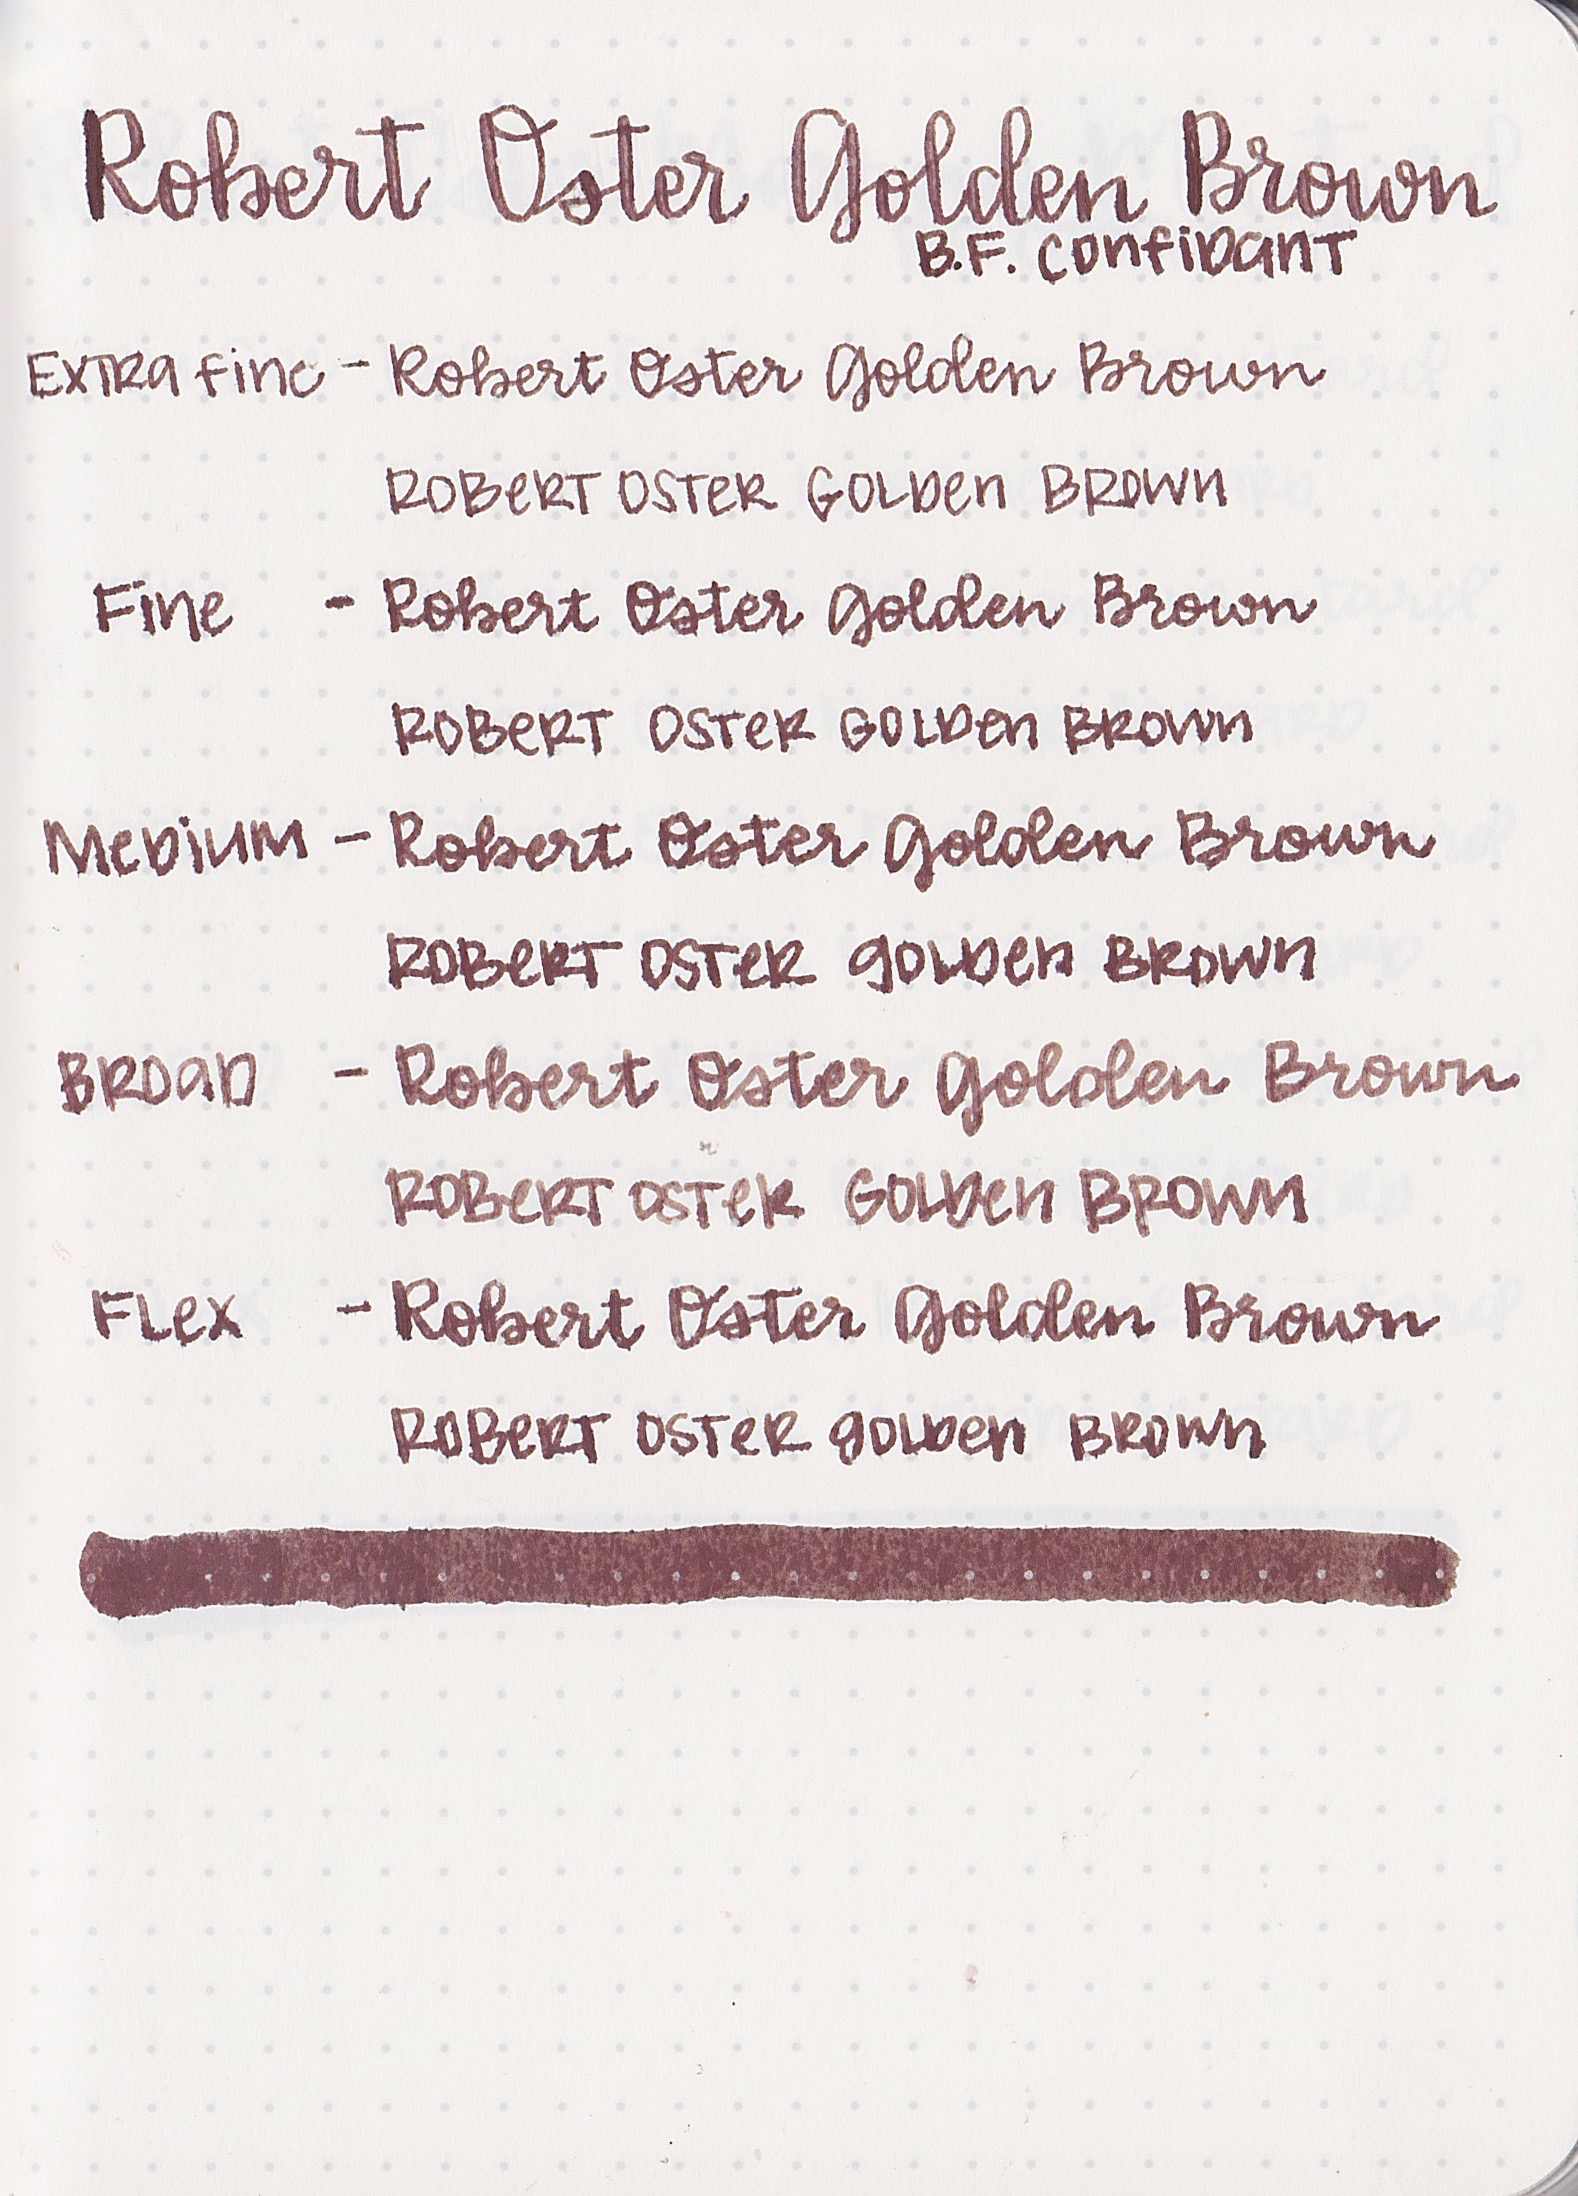 Robert Oster Golden Brown
B.F. Confidant
Extra Fine - Robert Oster Golden Brown
ROBERT OSTER GOLDEN BROWN
Fine - Robert Oster Golden Brown
ROBERT OSTER GOLDEN BROWN
Medium - Robert Oster Golden Brown
ROBERT OSTER GOLDEN BROWN
Broad - Robert Oster Golden Brown
ROBERT OSTER GOLDEN BROWN
Flex - Robert Oster Golden Brown
ROBERT OSTER GOLDEN BROWN